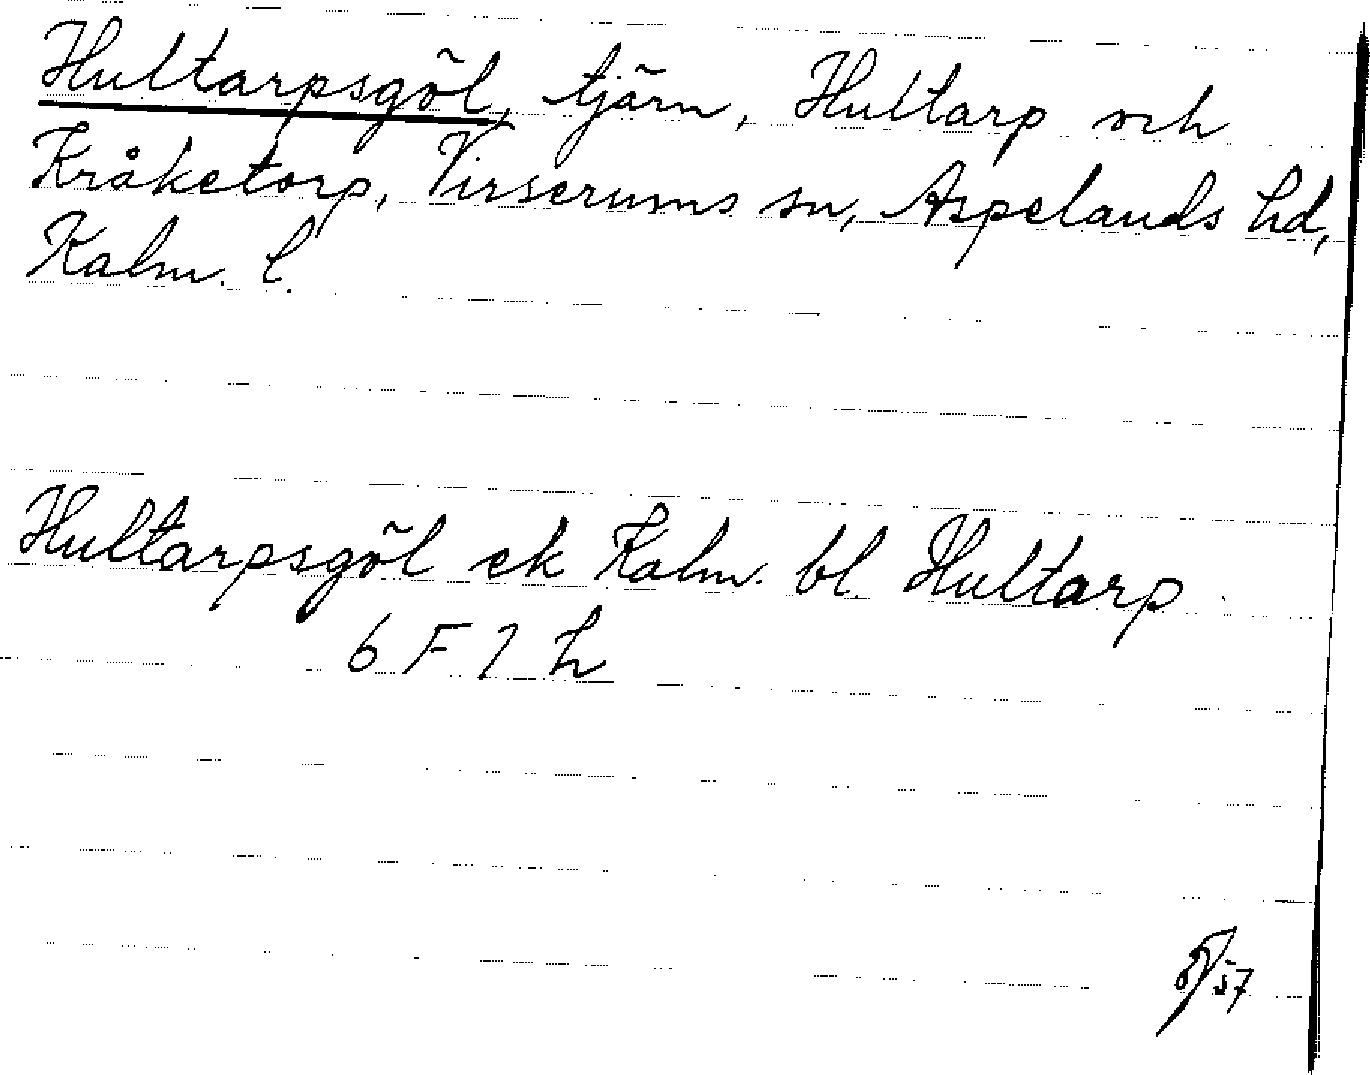 Hultarpsgöl, tjärn, Hultarp och
Kråketorp, Virserums sn, Aspelands hd,
Kalm. l.
Hultarpsgöl ek Kalm. bl. Hultarp
6 F 7 h
57